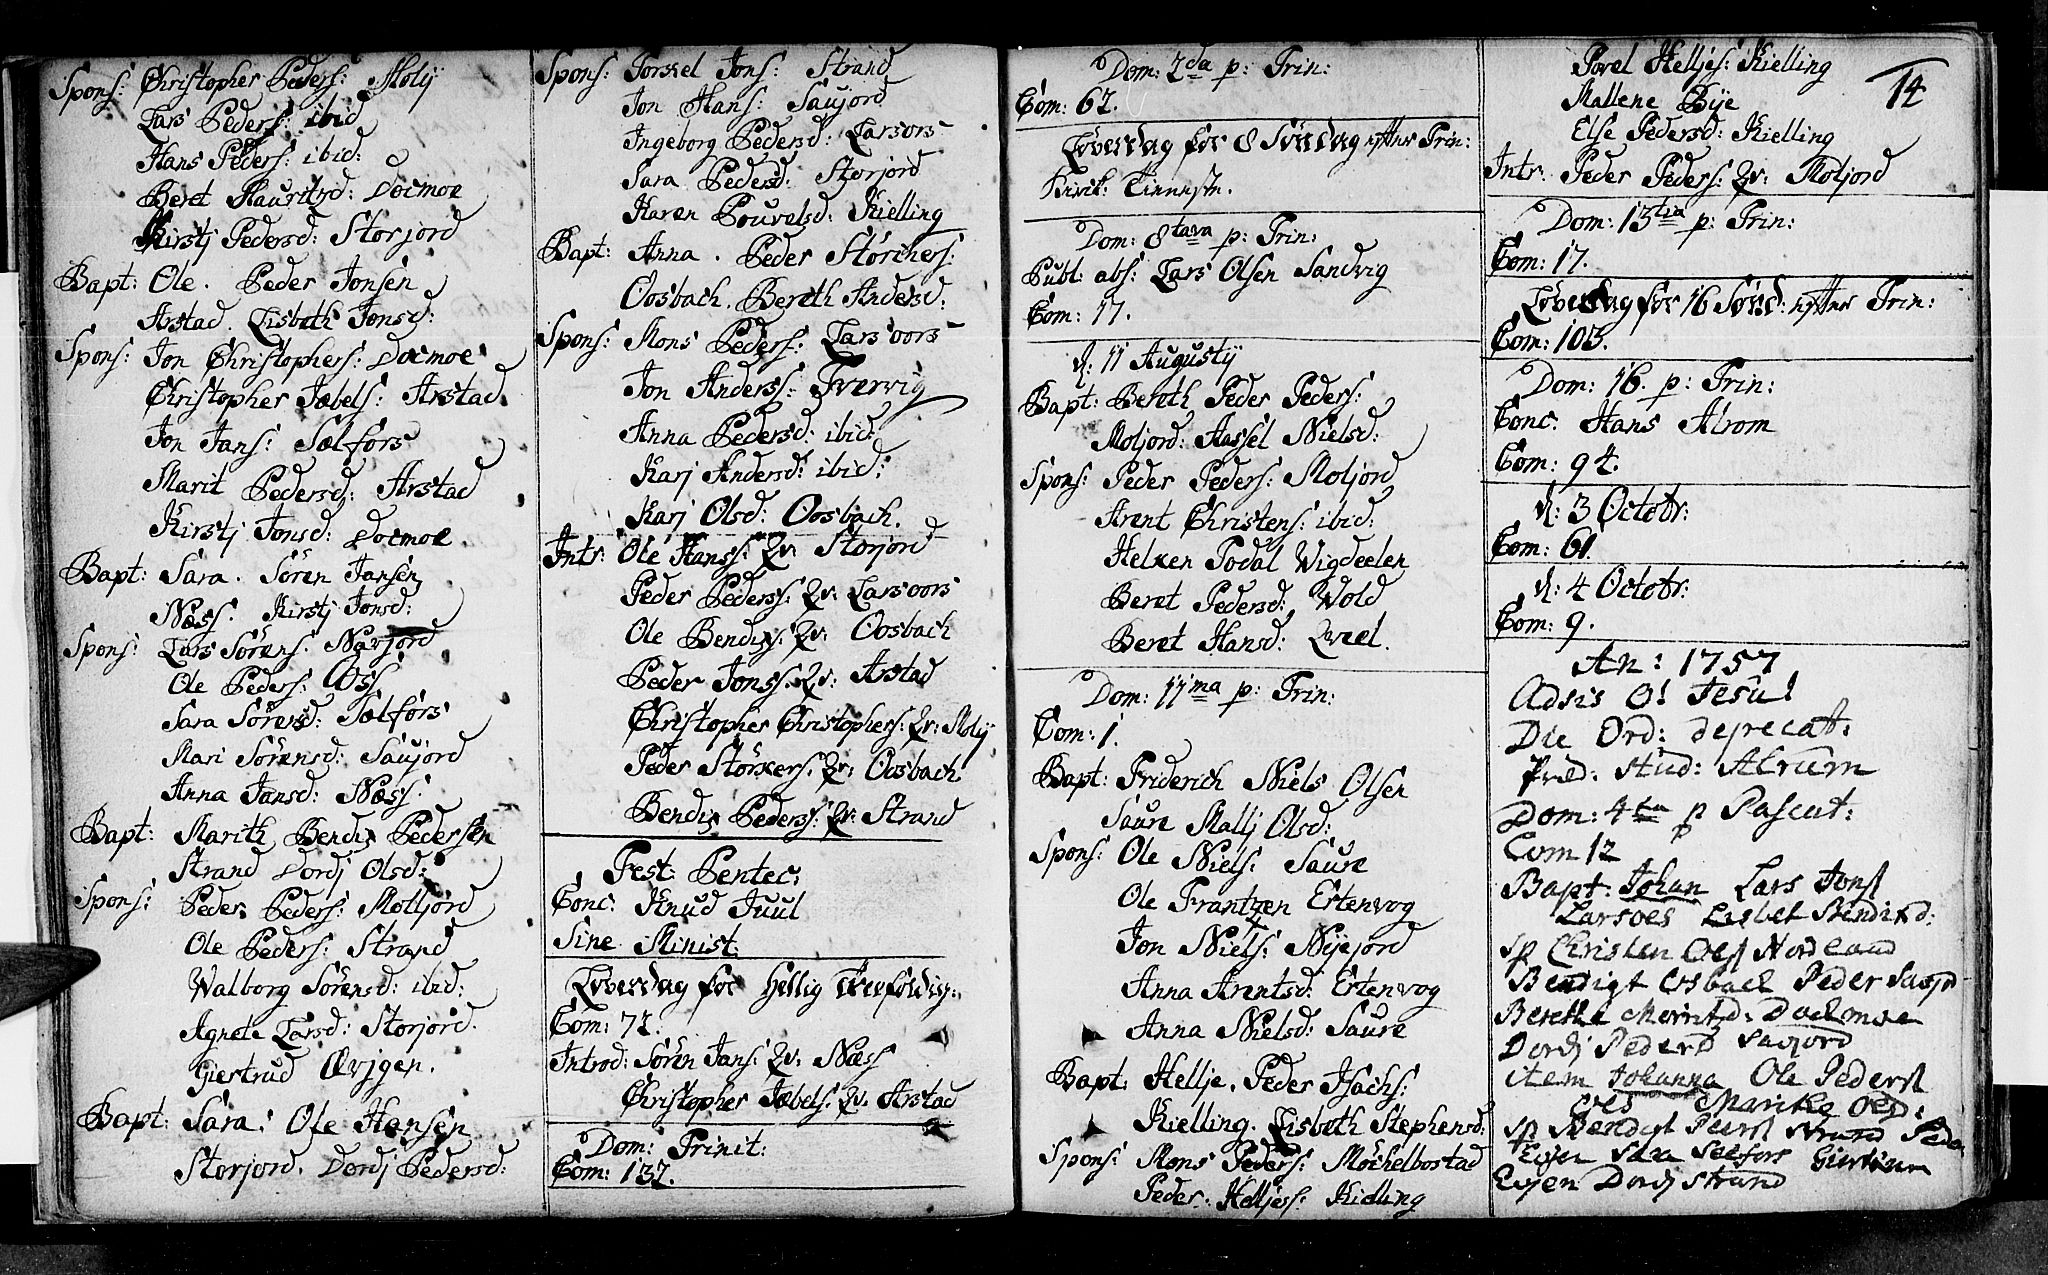 Spons: Christopher Peders: Moly
Lars Peders: ibid
Hans Peders: ibid:
Beret Mauritzd: Docmoe
Kirstj Pedersd: Storjord
Bapt: Ole. Peder Jonsen
Arstad. Lisbeth Jonsd:
Spons: Jon Christophers: Docmoe
Christopher Jæbels: Arstad
Jon Jans: Sælfors
Marit Pedersd: Arstad
Kirstj Jonsd: Docmoe
Bapt: Sara. Sören Jansen
Næss. Kirstj Jonsd:
Spons: Lars Sörens: Navjord
Ole Peders: Oss
Sara Sörensd: Sælfors
Mari Sörensd: Saujord
Anna Jansd: Næss.
Bapt: Marith Bendix Pedersen
Strand Dordj Olsd:
Spons: Peder Peders: Molljord
Ole Peders: Strand
Walborg Sörensd: ibid:
Agnete Larsd: Storjord.
Giertrud Ævjgen.
Bapt: Sara: Ole Hansen
Storjord. Dordj Pedersd:
Spons: Torkel Jons: Strand
Jon Hans: Saujord
Ingeborg Pedersd: Larsors
Sara Pedersd: Storjord
Karen Pouvelsd: Kielling
Bapt: Anna. Peder Störchers:
Oosbach. Bereth Andersd:
Spons: Mons Peders: Larsoors
Jon Anderss: Tvervig
Anna Pedersd: ibid:
Karj Andersd: ibid:
Karj Olsd: Oosbach.
Intr: Ole Hanss: Qv: Storjord
Peder Peders: Qv: Larsoors
Ole Bendix: Qv: Oosbach
Peder Jonss: Qv: Arstad
Christopher Christophers: Qv: Moly
Peder Störkers: Qv: Oosbach
Bendix Peders: Qv: Strand
Fest: Pentec:
Conc: Knud Juul
Sine Minist:
Löverdag for Hellig Trefoldig:
Com: 72.
Introd: Sören Jans: Qv: Næss
Christopher Jæbels: Qv: Arstad
Dom: Trinit:
Com: 132.
Dom: 2da p: Trin:
Com: 62.
Löverdag for 8 Söndag efter Trin:
Dom: 8tava p: Trin:
Publ: abs: Lars Olsen Sandvig
Com: 17.
d: 11 Augustij
Bapt: Bereth Peder Peders:
Moljord: Aassel Nielsd:
Spons: Peder Peders: Moljord
Arent Christens: ibid:
Helken Todal Wigdeelen
Beret Pedersd: Wold
Beret Hansd: Qvæl.
Dom: 11ma p: Trin:
Com: 1.
Bapt: Friderich Niels Olsen
Saure Mallj Olsd:
Spons: Ole Niels: Saure
Ole Frantzen Ertenvog
Jon Niels: Nyejord
Anna Arentsd: Ertenvog
Anna Nielsd: Saure
Bapt: Hellje. Peder Isachs:
Kielling. Lisbeth Stephensd:
Spons: Mons Peders: Möchelbostad
Peder Helljess: Kielling
14
Povel Helljes: Kielling
Mallene Bye
Else Pedersd: Kielling
Intr: Peder Peders: Qv: Moljord
Dom: 13tia p: Trin:
Com: 17.
Löverdag for 16 Sönd: efter Trin:
Com: 103.
Dom: 16. p: Trin:
Conc: Hans Alrom
Com: 94.
d: 3 Octobr:
Com: 61.
d: 4 Octobr:
Com: 9.
An: 1757
Adsis O! Jesu!
Die Ord: deprecat:
Præd: Stud: Alrum
Dom: 4ta p Pascat:
Com 12
Bapt: Johan Lars Jons
Larsoes Lisbet Bendixd:
Sp Christen Oles Nordland
Bendigt Osbach Peder Savjo
Berethe Moritzd: Dockmoe
Dordj Pedersd Savjord
item Johanna Ole Peders
Oes Marithe Oles:
Sp Bendigt Peders Strand Peder
Evjen Sara Selfors
Evjen Dordj Strand